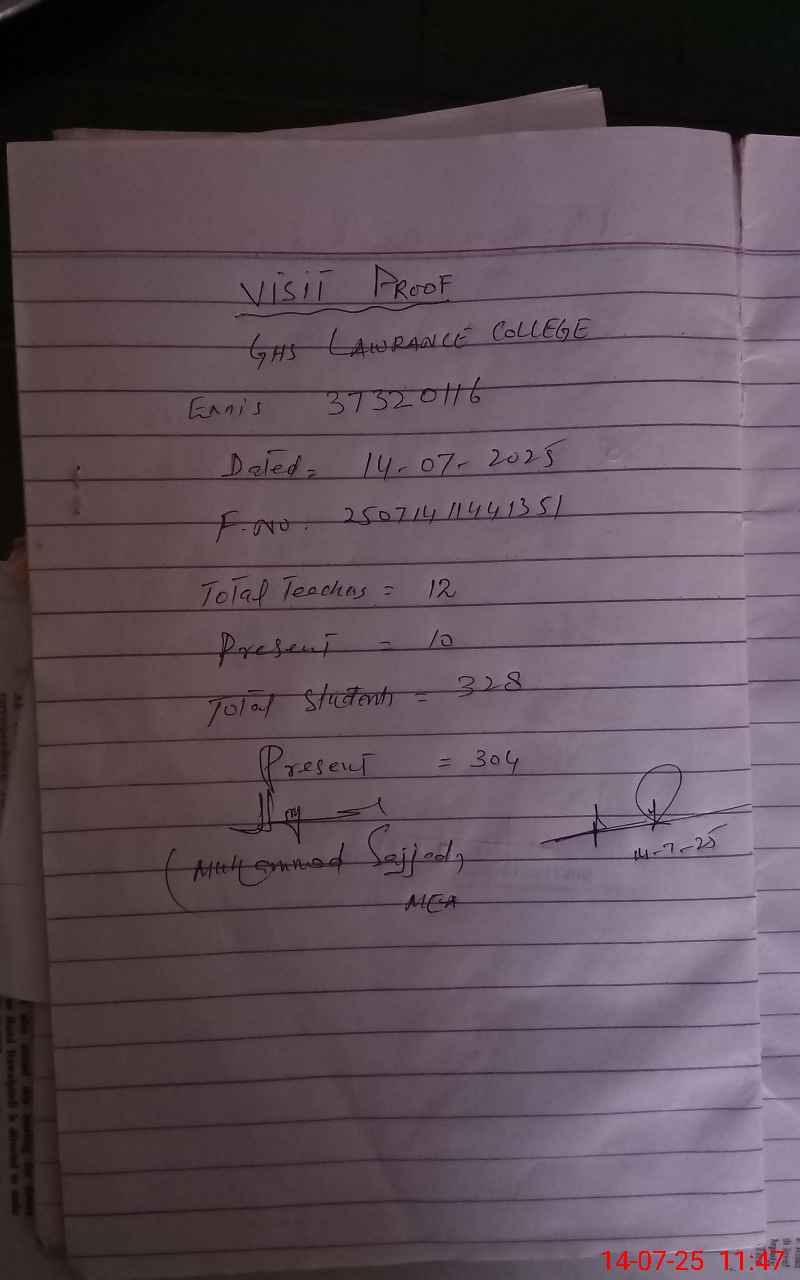 VISIT PROOF
GHS LAWRANCE COLLEGE
Emis 37320116
Dated= 14-07-2025
F.No. 25071411441351
Total Teachas = 12
Present = 10
Total Students = 328
Present = 304
14-7-25
(Muhammad Sajjad,
MEA
14-07-25 11:47